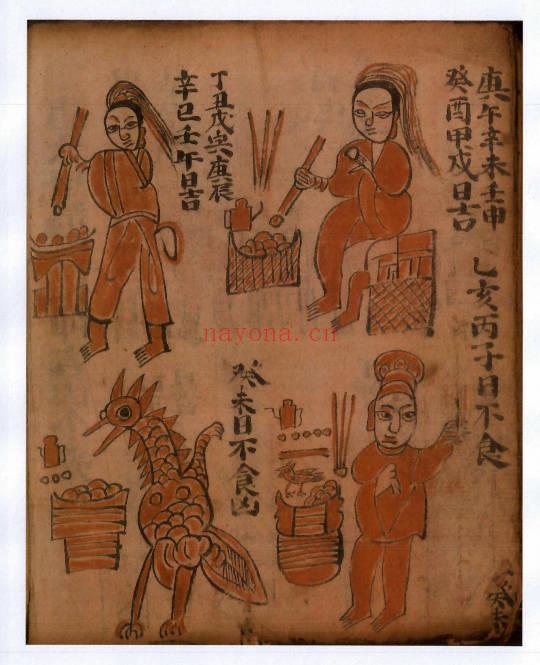 庚午辛未壬申
癸酉甲戌日吉
乙亥丙子日不食
丁丑戊寅庚辰
辛巳壬午日吉
癸未日不食凶
癸未
nayona.cn